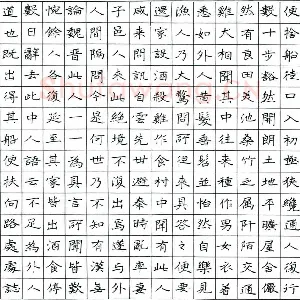 便捨船從口入初極狹纔通人復行
數十步豁然開朗土地平曠屋舍儼
然有良田美池桑竹之屬阡陌交通
雞犬相聞其中往來種作男女衣著
悉如外人黃髮垂髫並怡然自樂見
漁人乃大驚問所從來具答之便要
還家設酒殺雞作食村中聞有此人
咸來問訊自云先世避秦時亂率妻
子邑人來此絕境不復出焉遂與外
人間隔問今是何世乃不知有漢無
論魏晉此人一一為具言所聞皆歎
惋餘人各復延至其家皆出酒食停
數日辭去此中人語云不足為外人
道也既出得其船便扶向路處處誌